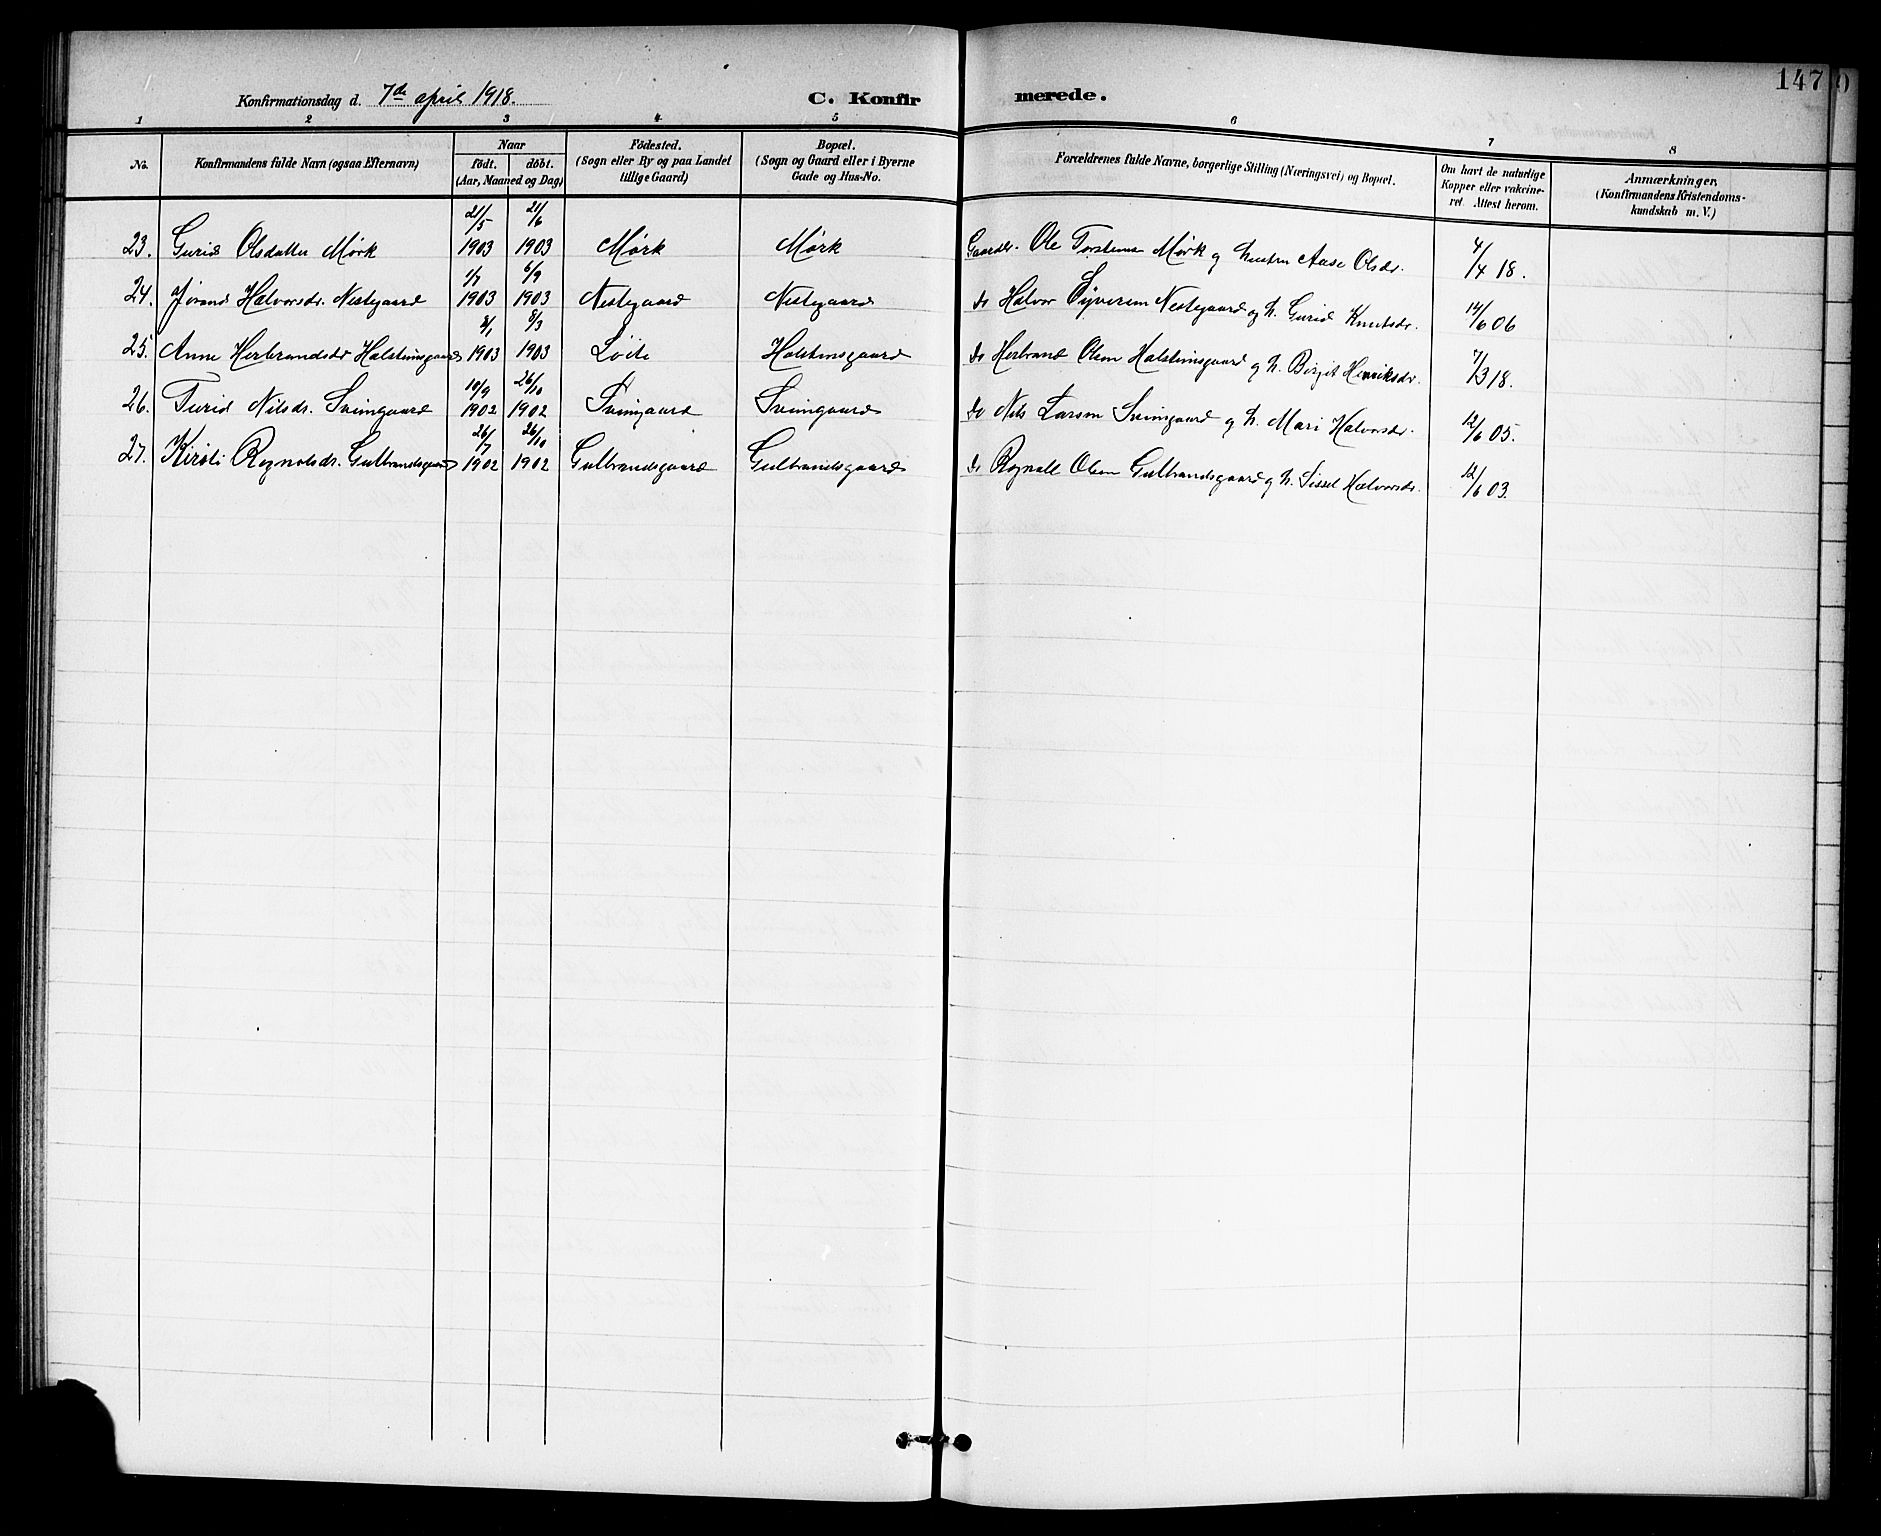 147
Konfirmationsdag d. 7de april 1918. C. Konfirmerede.
1 2 3 4 5 6 7 8
No. Konfirmandens fulde Navn (ogsaa Efternavn) Naar födt. döbt. (Aar, Maaned og Dag) Födested. (Sogn eller By og paa Landet tillige Gaard) Bopæl. (Sogn og Gaard eller i Byerne Gade og Hus-No. Forældrenes fulde Navne, borgerlige Stilling (Næringsvei) og Bopæl. Om havt de naturlige Kopper eller vakcineret. Attest herom. Anmærkninger. (Konfirmandens Kristendomskundskab m. V.)
23. Gurid Olsdatter Mørk 21/5 1903 21/6 1903 Mørk Mørk Gaardbr. Ole Torstensen Mørk og hustru Aase Olsdr. 4/4 18.
24. Jørand Halvorsdr. Nestegaard 1/7 1903 6/9 1903 Nestegaard Nestegaard do Halvor Syversen Nestegaard og h. Gurid Knutsdr. 14/6 06
25. Anne Herbrandsdr Halstensgaard 8/1 1903 8/3 1903 Løite Halstensgaard do Herbrand Olsen Halstensgaard og h. Birgit Henriksdr. 7/3 18.
26. Turid Nilsdr. Sveingaard 10/9 1902 26/10 1902 Sveingaard Sveingaard do Nils Larsen Sveingaard og h. Mari Halvorsdr. 12/6 05.
27. Kirsti Rognaldsdr. Gulbrandsgaard 26/7 1902 26/10 1902 Gulbrandsgaard Gulbrandsgaard do Rognald Olsen Gulbrandsgaard og h. Sissel Halvorsdr. 12/6 03.